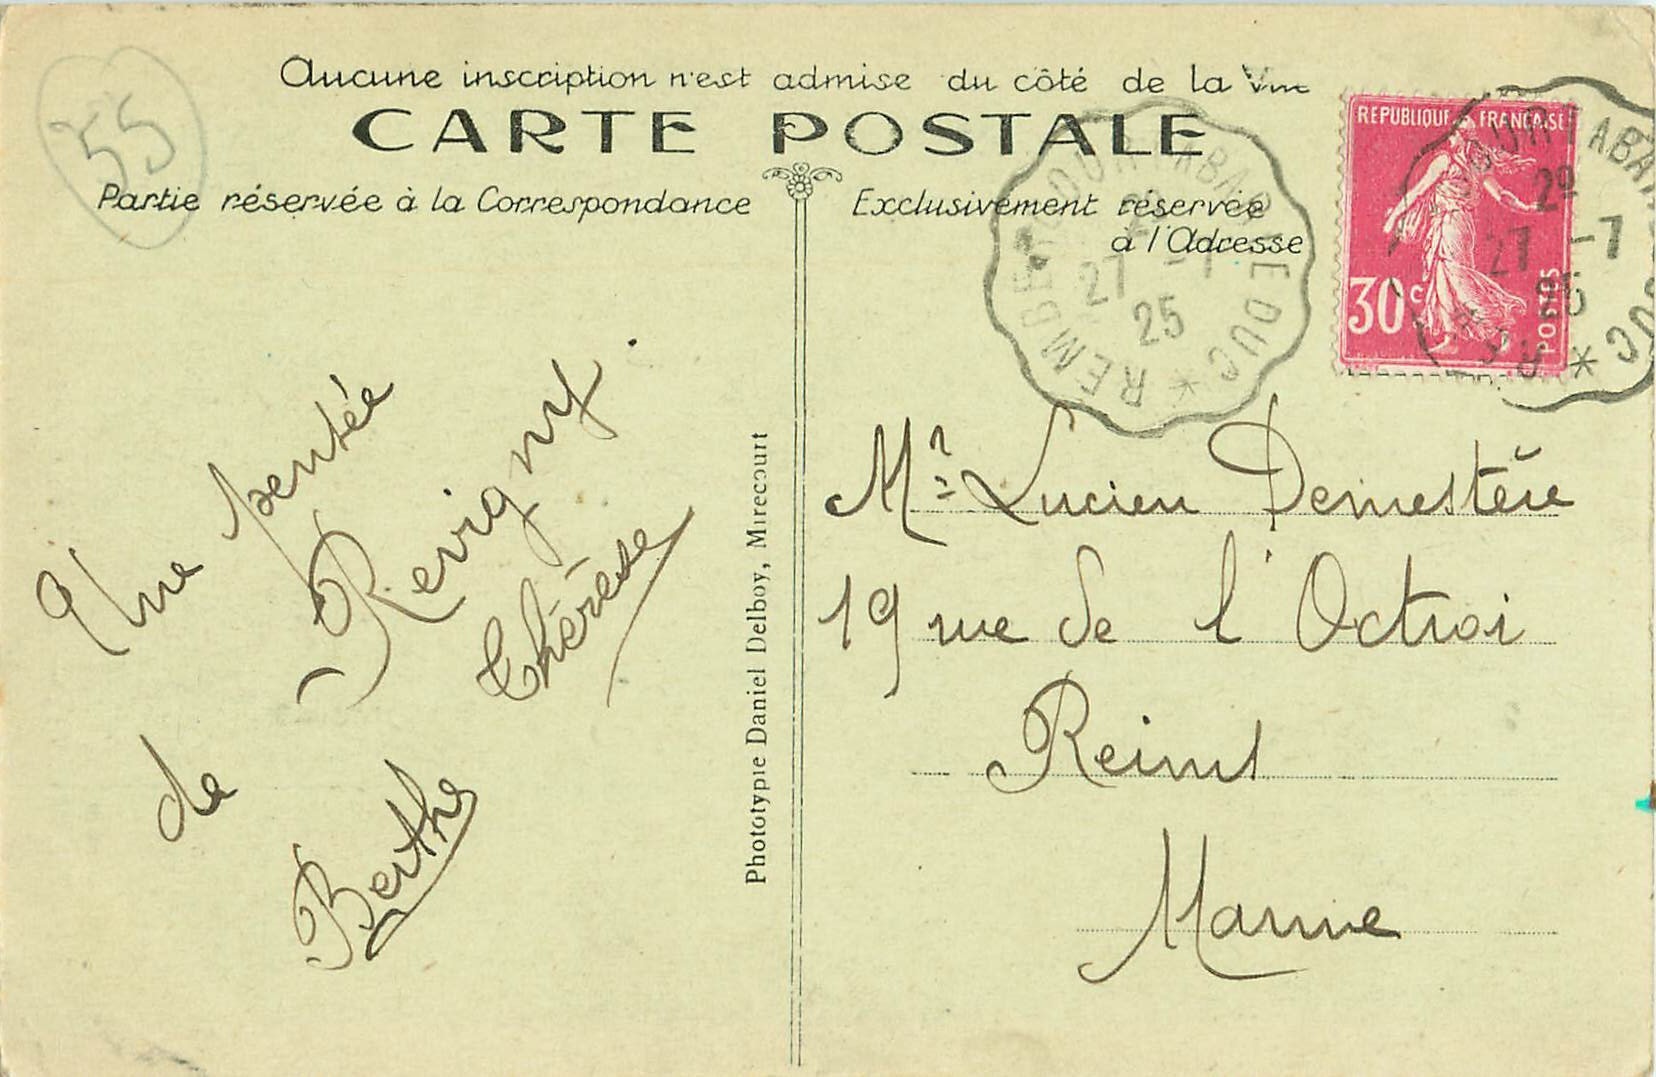 55
Aucune inscription n'est admise du côté de la Vue
CARTE POSTALE
Partie réservée à la Correspondance
Exclusivement réservée
à l'Adresse
REMBERCOURT A BAR LE DUC *
27 -7
25
REPUBLIQUE FRANÇAISE
30c
POSTES
2º
27 -7
25
Une pensée
de Revigny.
Thérèse
Berthe
Phototypie Daniel Delboy, Mirecourt
Mr Lucien Demestère
19 rue de l'Octroi
Reims
Marne